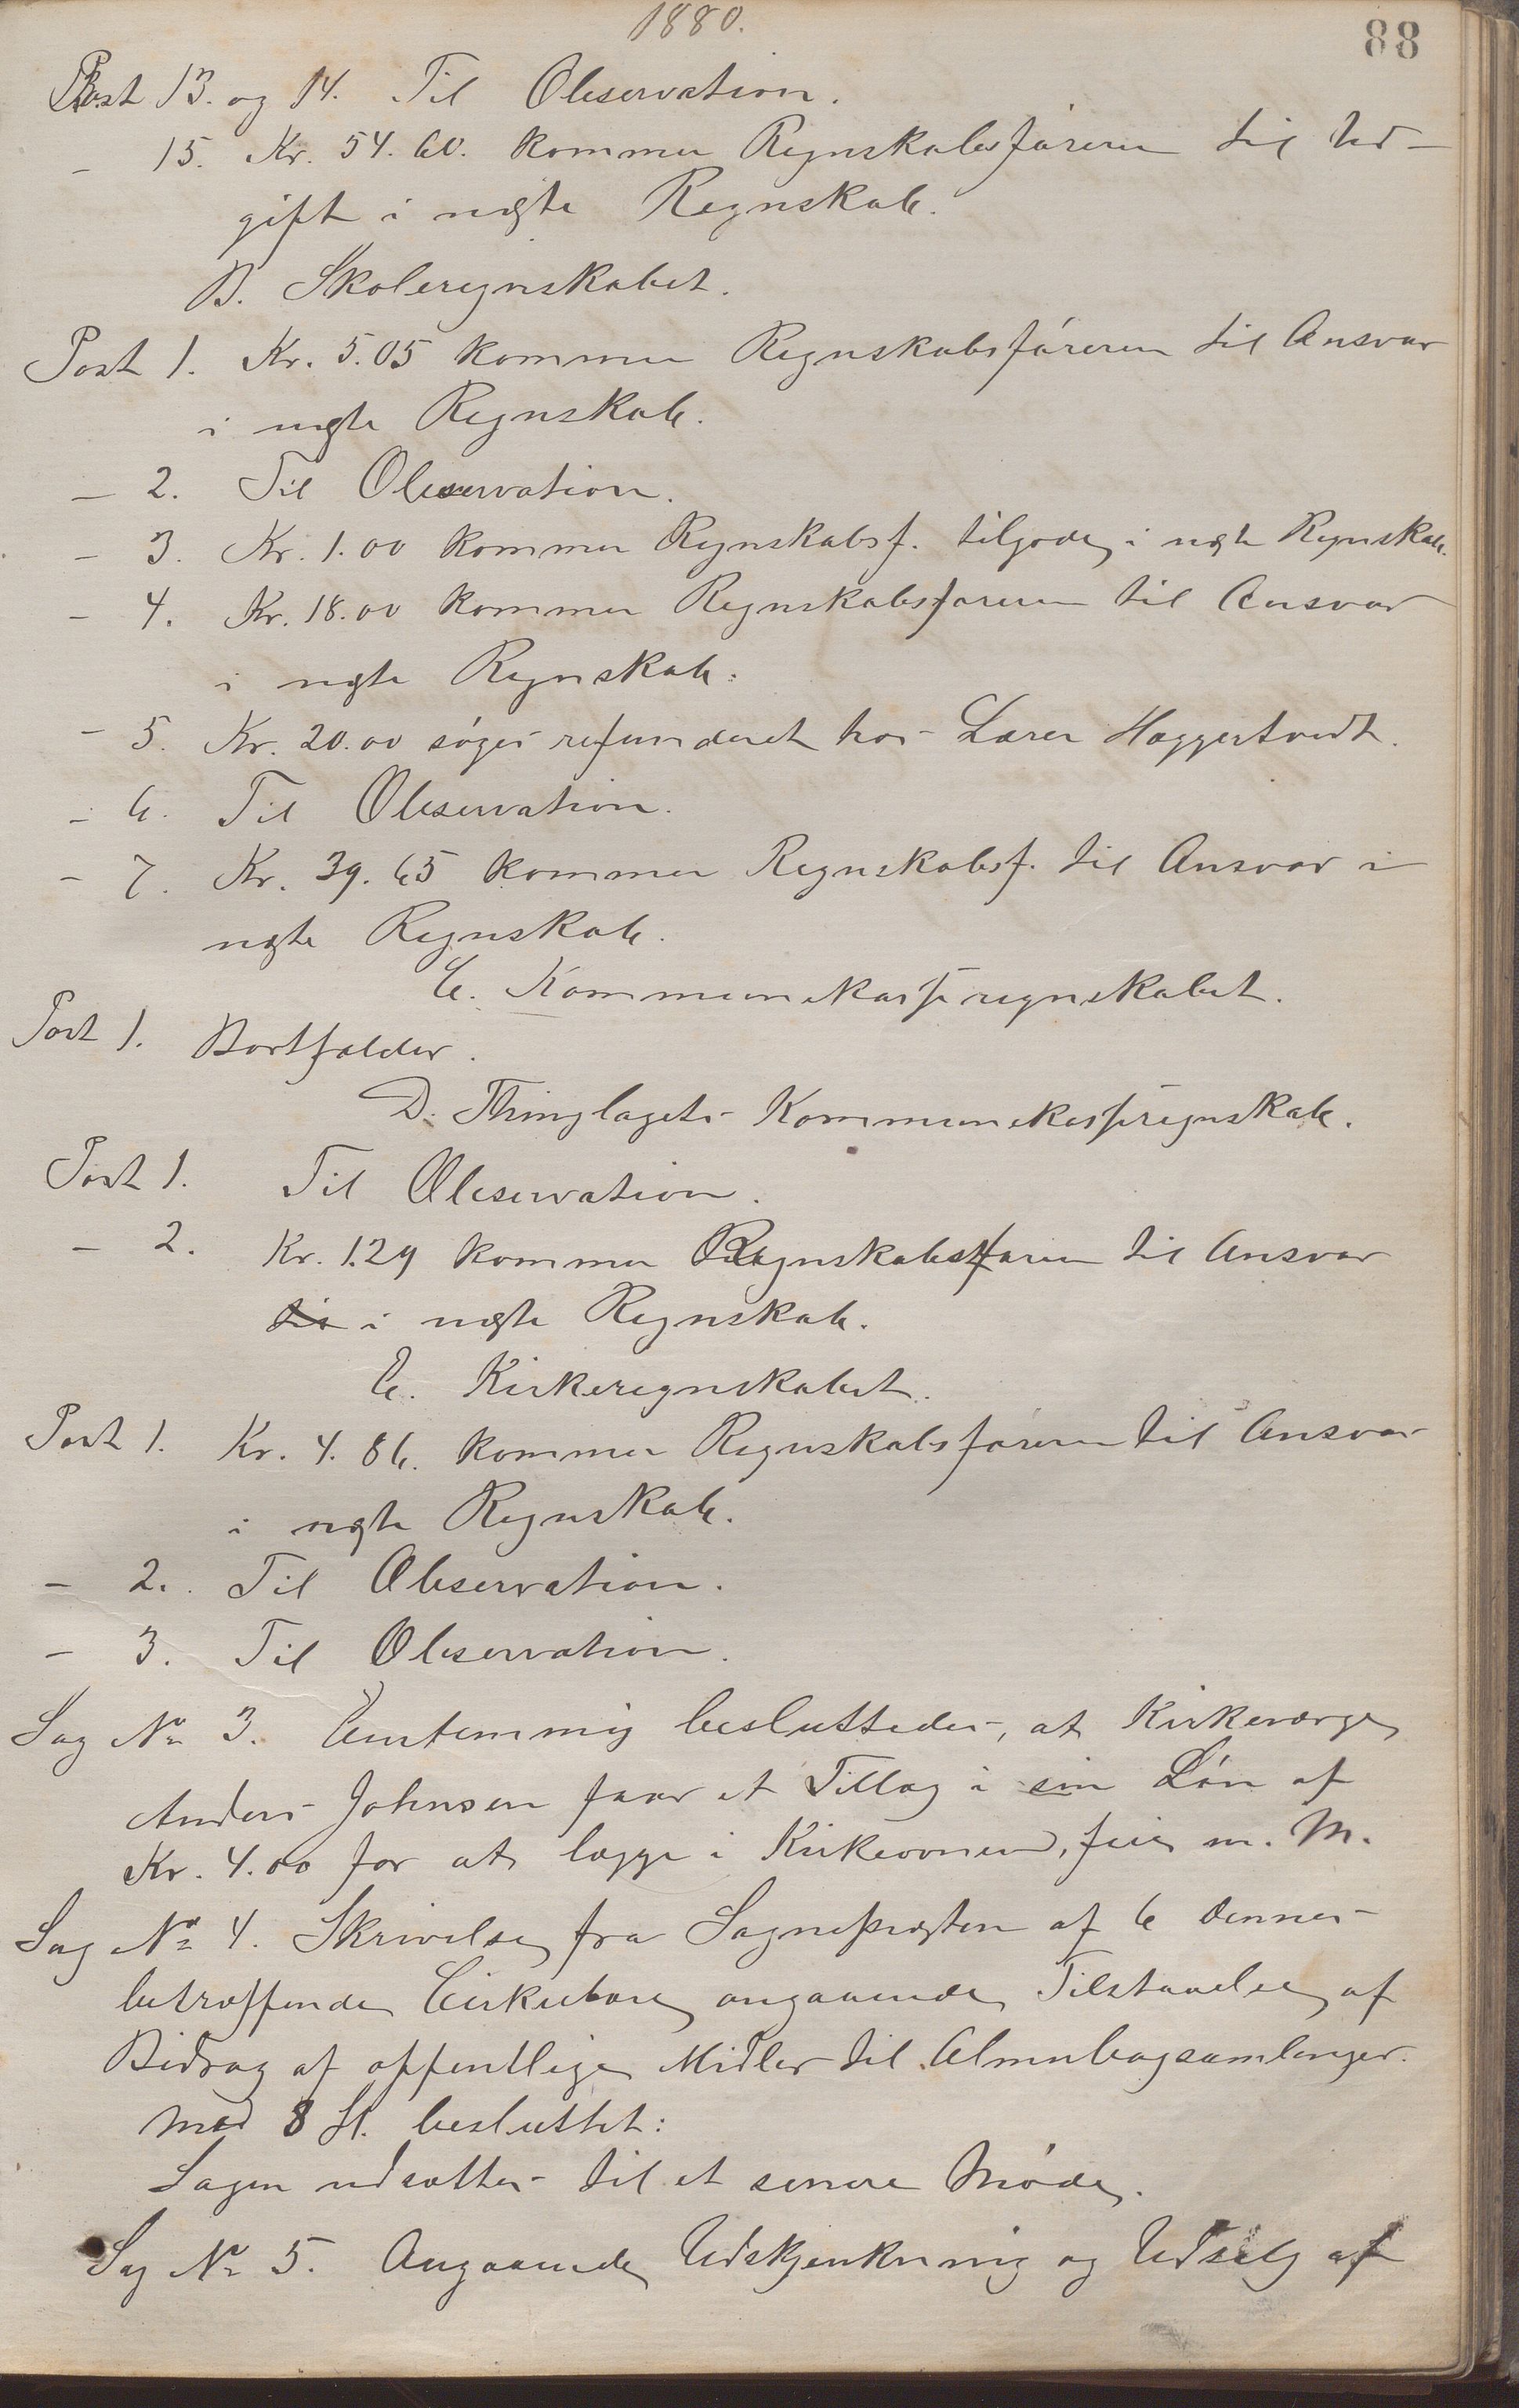 1880.
88
Post 13. og 14. Til Observation.
- 15. Kr. 54.60. kommer Regnskabsføreren til Ud-
gift i næste Regnskab.
B. Skoleregnskabet.
Post 1. Kr. 5.05 kommer Regnskabsføreren til Ansvar
i næste Regnskab.
- 2. Til Observation.
- 3. Kr. 1.00 kommer Regnskabsf. tilgode i næste Regnskab.
- 4. Kr. 18.00 kommer Regnskabsføreren til Ansvar
i næste Regnskab.
- 5. Kr. 20.00 søges refunderet hos Lærer Haggertvedt.
- 6. Til Observation.
- 7. Kr. 39.65 kommer Regnskabsf. til Ansvar i
næste Regnskab.
C. Kommunekasseregnskabet.
Post 1. Bortfalder.
D. Thinglagets Kommunekasseregnskab.
Post 1. Til Observation.
- 2. Kr. 1.29 kommer Regnskabsføreren til Ansvar
til i næste Regnskab.
E. Kirkeregnskabet.
Post 1. Kr. 4.86. kommer Regnskabsføreren til Ansvar
i næste Regnskab.
- 2. Til Observation.
- 3. Til Observation.
Sag No 3. Eenstemmig besluttedes, at Kirkeværge
Anders Johnsen faar et Tillæg i sin Løn af
Kr. 4.00 for at lægge i Kirkeovnen, feie m. M.
Sag No 4. Skrivelse fra Sognepræsten af 6 dennes
betræffende Cirkulære angaaende Tilstaaelse af
Bidrag af offentlige Midler til Almuebogsamlinger.
Med 8 St. besluttet:
Sagen udsættes til et senere Møde.
Sag No 5. Angaaende Udskjenkning og Udsalg af